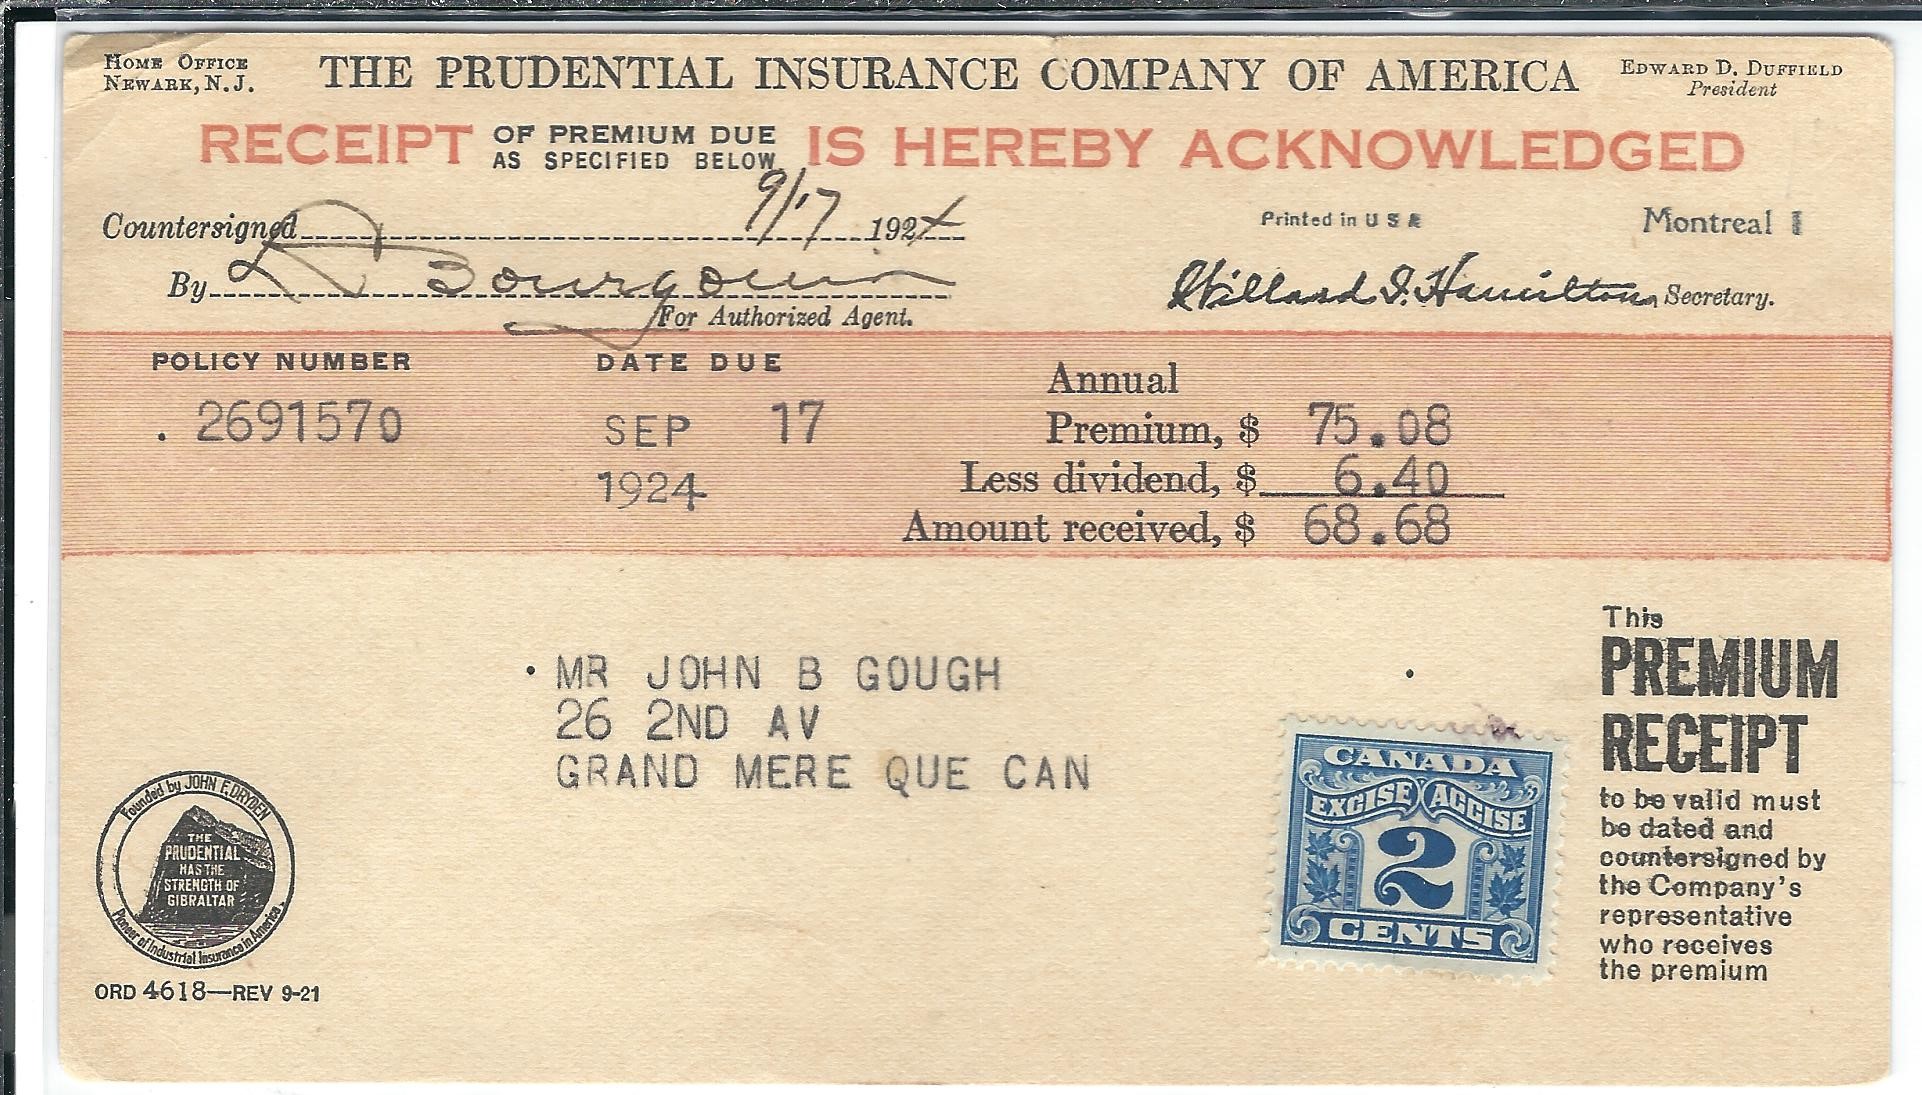 HOME OFFICE
NEWARK, N.J.
THE PRUDENTIAL INSURANCE COMPANY OF AMERICA
EDWARD D. DUFFIELD
President
RECEIPT OF PREMIUM DUE AS SPECIFIED BELOW IS HEREBY ACKNOWLEDGED
Countersigned 9/17 1924
Printed in U S A
Montreal 1
By Bourgouin
For Authorized Agent.
Willard I. Hamilton, Secretary.
POLICY NUMBER
. 2691570
DATE DUE
SEP 17
1924
Annual
Premium, $ 75.08
Less dividend, $ 6.40
Amount received, $ 68.68
MR JOHN B GOUGH
26 2ND AV
GRAND MERE QUE CAN
Founded by JOHN F. DRYDEN
THE
PRUDENTIAL
HAS THE
STRENGTH OF
GIBRALTAR
Pioneer of Industrial Insurance in America.
ORD 4618—REV 9-21
CANADA
EXCISE ACCISE
2
CENTS
This
PREMIUM
RECEIPT
to be valid must
be dated and
countersigned by
the Company's
representative
who receives
the premium